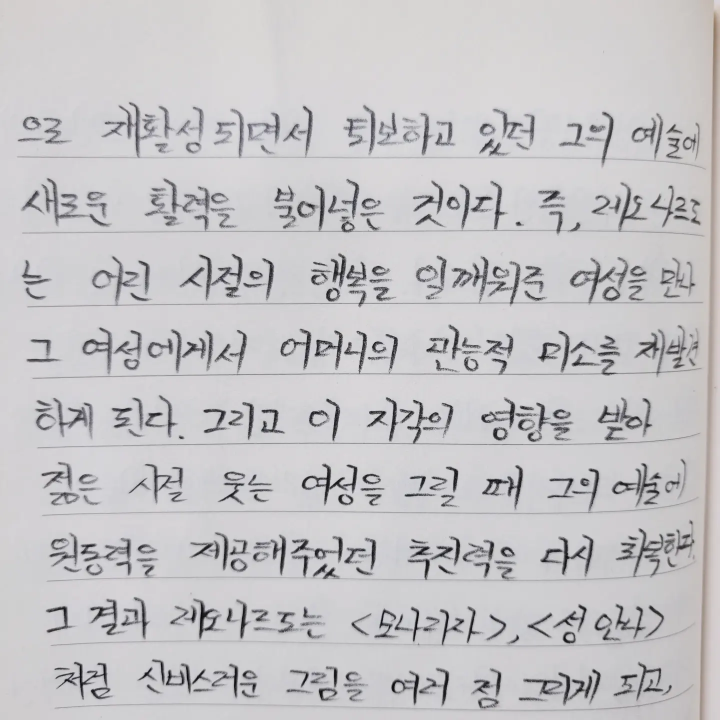 으로 재활성되면서 퇴보하고 있던 그의 예술에
새로운 활력을 불어넣은 것이다. 즉, 레오나르도
는 어린 시절의 행복을 일깨워준 여성을 만나
그 여성에게서 어머니의 관능적 미소를 재발견
하게 된다. 그리고 이 자각의 영향을 받아
젊은 시절 웃는 여성을 그릴 때 그의 예술에
원동력을 제공해주었던 추진력을 다시 회복한다.
그 결과 레오나르도는 <모나리자>, <성 안나>
처럼 신비스러운 그림을 여러 점 그리게 되고,